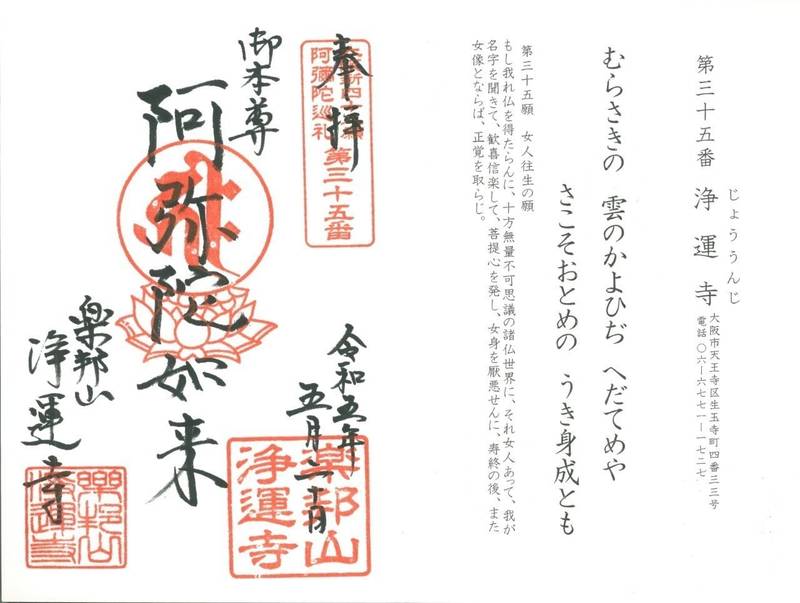 第三十五番 浄運寺
じょううんじ
大阪市天王寺区生玉寺町四番三三号
電話〇六―六七七一―一七二七
むらさきの 雲のかよひぢ へだてめや
さこそおとめの うき身成とも
第三十五願 女人往生の願
もし我れ仏を得たらんに、十方無量不可思議の諸仏世界に、それ女人あって、我が
名字を聞きて、歓喜信楽して、菩提心を発し、女身を厭悪せんに、寿終の後、また
女像とならば、正覚を取らじ。
奉拝
阿彌陀巡礼
第三十五番
令和五年
五月二十日
楽邦山
浄運寺
御本尊
阿弥陀如来
楽邦山
浄運寺
樂邦山
浄運寺